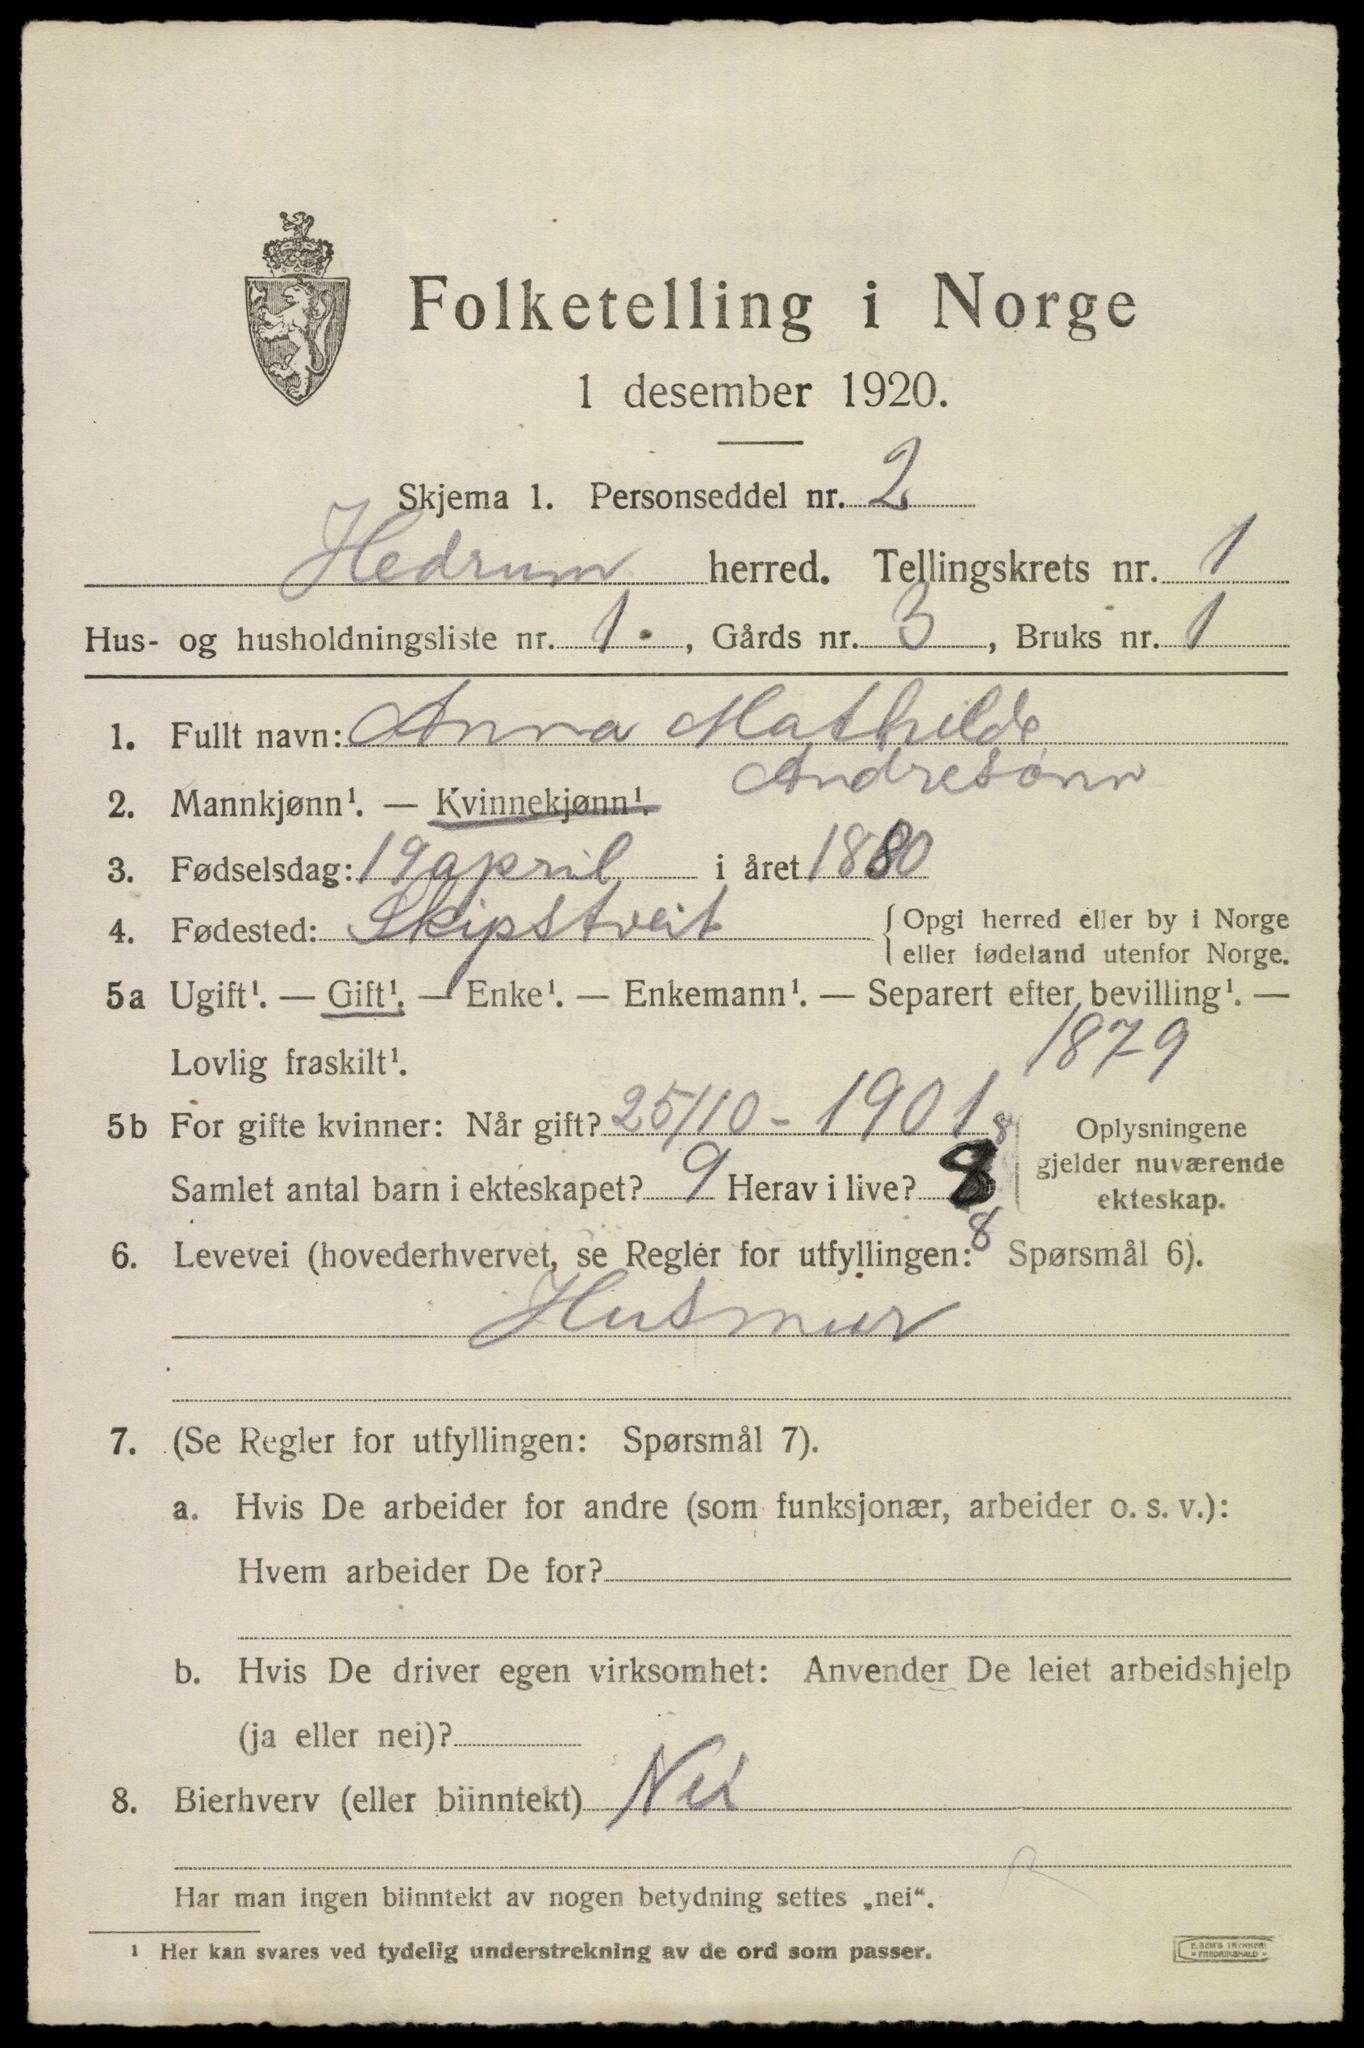 Folketelling i Norge
1 desember 1920.
Skjema 1. Personseddel nr. 2
Hedrum herred. Tellingskrets nr. 1
Hus- og husholdningsliste nr. 1. , Gårds nr. 3 , Bruks nr. 1
1. Fullt navn: Anna Mathilde
Andresønn
2. Mannkjønn¹. — Kvinnekjønn¹.
3. Fødselsdag: 19 april i året 1880
4. Fødested: Skipstveit { Opgi herred eller by i Norge
eller fødeland utenfor Norge.
5a Ugift¹. — Gift¹. — Enke¹. — Enkemann¹. — Separert efter bevilling¹. —
Lovlig fraskilt¹. 1879
5b For gifte kvinner: Når gift? 25/10 - 1901 8 Oplysningene
gjelder nuværende
ekteskap.
Samlet antal barn i ekteskapet? 9 Herav i live? 8
8
6. Levevei (hovederhvervet, se Regler for utfyllingen: Spørsmål 6).
Husmur
7. (Se Regler for utfyllingen: Spørsmål 7).
a. Hvis De arbeider for andre (som funksjonær, arbeider o. s. v.):
Hvem arbeider De for?
b. Hvis De driver egen virksomhet: Anvender De leiet arbeidshjelp
(ja eller nei)?
8. Bierhverv (eller biinntekt) Nei
Har man ingen biinntekt av nogen betydning settes „nei“.
¹ Her kan svares ved tydelig understrekning av de ord som passer.